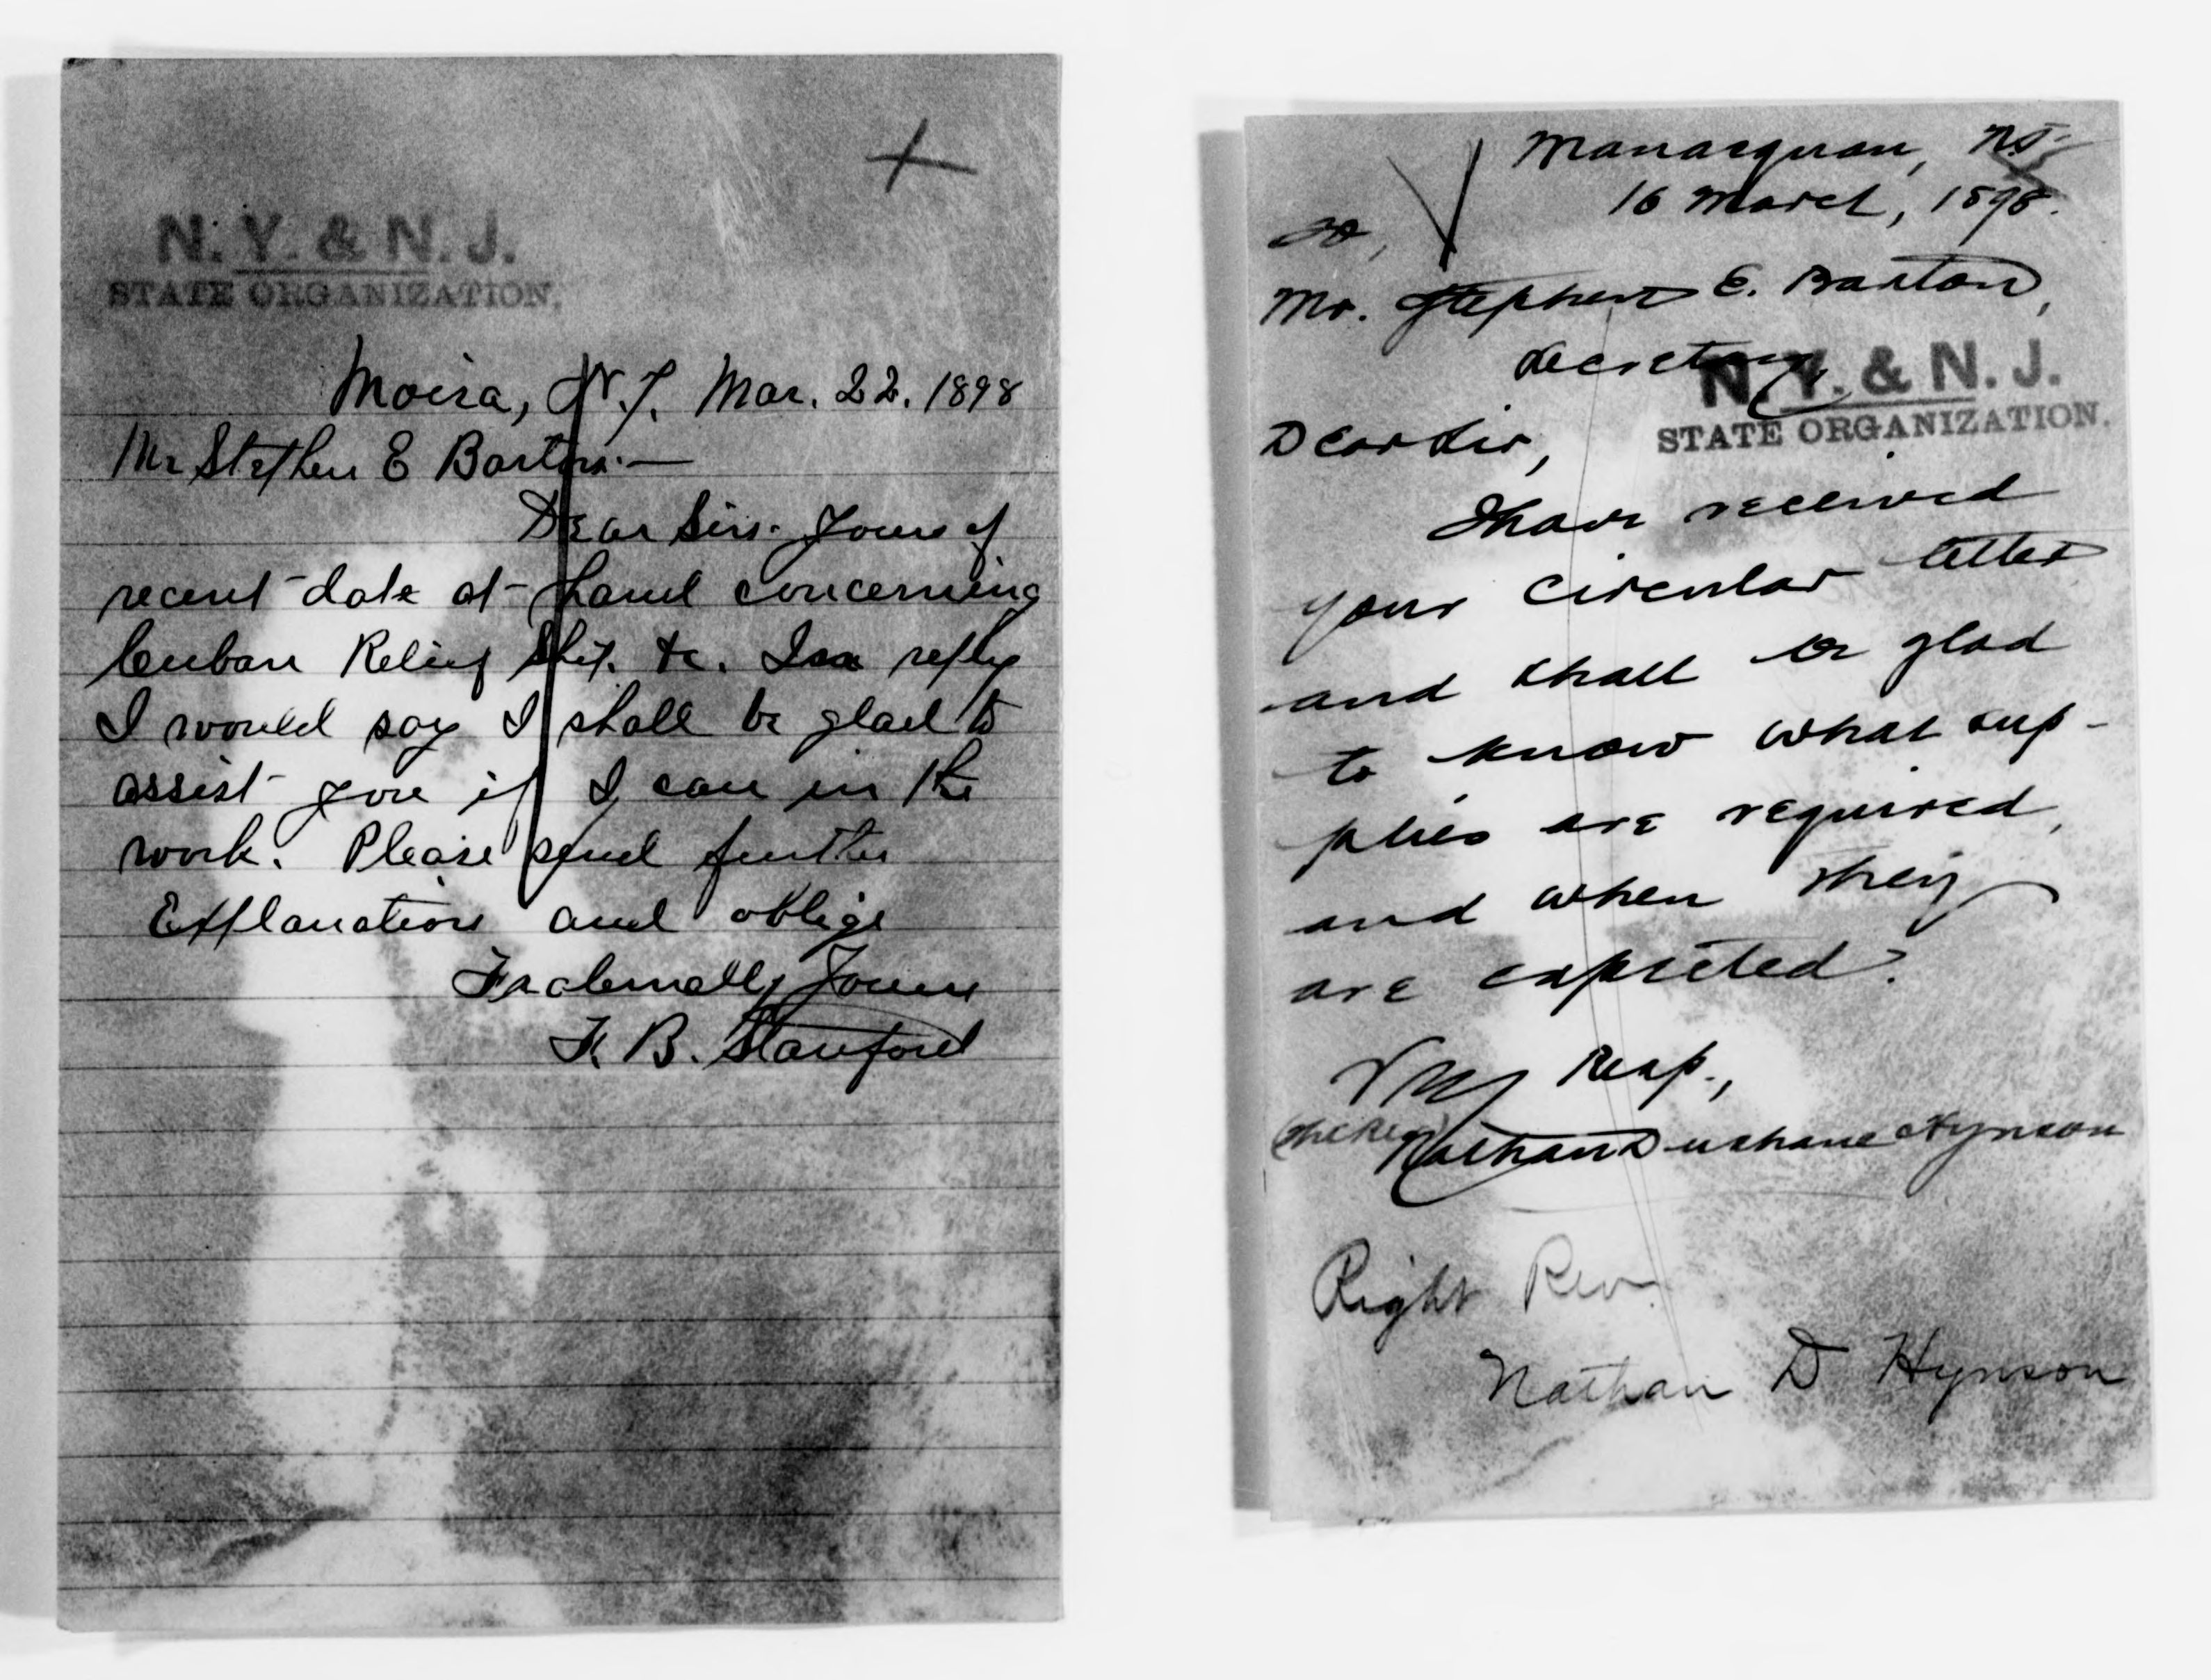 N. Y. & N. J.
STATE ORGANIZATION.
Moira, N.Y. Mar. 22. 1898
Mr Stephen E Barton:—
Dear Sir:- Yours of
recent date at hand concerning
Cuban Relief Ship. &c. In reply
I would say I shall be glad to
assist you if I can in the
work. Please send further
Explanation and oblige
Fraternally Yours
F. B. Stanford
Manasquan, NJ-
16 March, 1898.
To,
Mr. Stephen E. Barton,
Secretary
N. Y. & N. J.
STATE ORGANIZATION.
Dear Sir,
I have received
your circular letter
and shall be glad
to know what sup-
plies are required,
and when they
are expected?
Very Resp.,
(The Rev) Nathan Dushane Hynson
Right Rev.
Nathan D Hynson